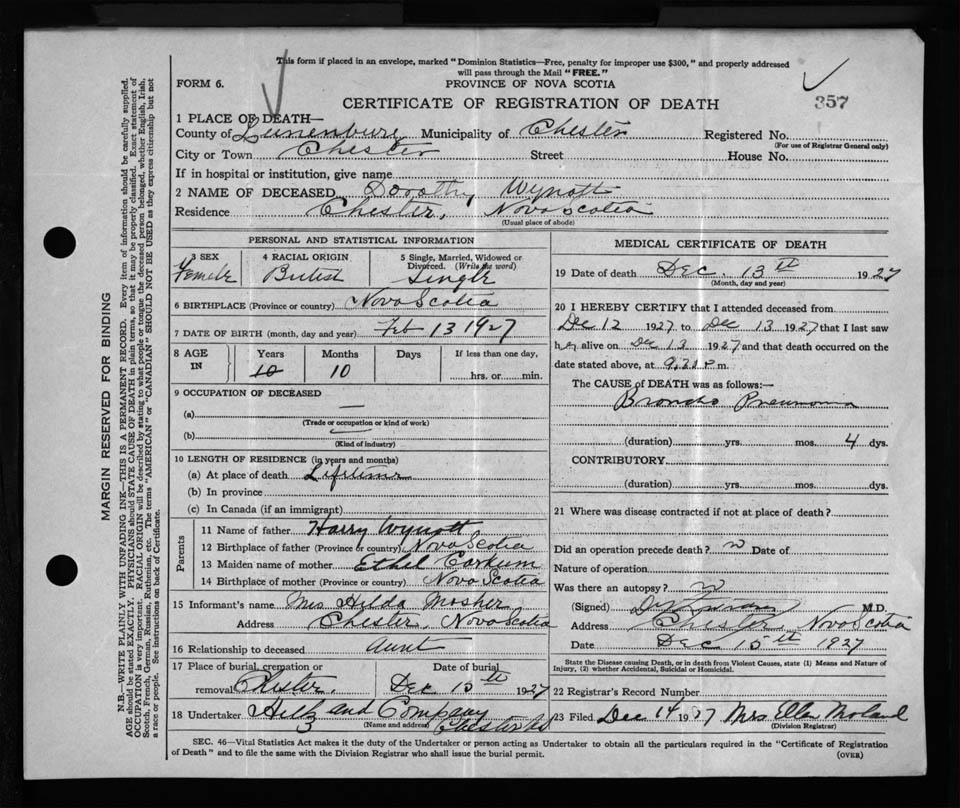 This form if placed in an envelope, marked "Dominion Statistics—Free, penalty for improper use $300," and properly addressed
will pass through the Mail "FREE."
FORM 6.
PROVINCE OF NOVA SCOTIA
CERTIFICATE OF REGISTRATION OF DEATH
357
1 PLACE OF DEATH—
County of Lunenburg Municipality of Chester Registered No.
(For use of Registrar General only)
City or Town Chester Street House No.
If in hospital or institution, give name
2 NAME OF DECEASED Dorothy Wynott
Residence Chester, Nova Scotia
(Usual place of abode)
PERSONAL AND STATISTICAL INFORMATION
3 SEX 4 RACIAL ORIGIN 5 Single, Married, Widowed or
Divorced. (Write the word)
Female British Single
6 BIRTHPLACE (Province or country) Nova Scotia
7 DATE OF BIRTH (month, day and year) Feb 13 1927
8 AGE IN Years Months Days If less than one day,
10 10 hrs. or min.
9 OCCUPATION OF DECEASED
(a) —
(Trade or occupation or kind of work)
(b) —
(Kind of industry)
10 LENGTH OF RESIDENCE (in years and months)
(a) At place of death Lifetime
(b) In province
(c) In Canada (if an immigrant)
Parents
11 Name of father Harry Wynott
12 Birthplace of father (Province or country) Nova Scotia
13 Maiden name of mother Ethel Corkum
14 Birthplace of mother (Province or country) Nova Scotia
15 Informant's name Mrs Hilda Mosher
Address Chester, Nova Scotia
16 Relationship to deceased Aunt
17 Place of burial, cremation or Date of burial
removal Chester. Dec 15th 1927
18 Undertaker and Company
(Name and address) Chester NS
MEDICAL CERTIFICATE OF DEATH
19 Date of death Dec. 13th 1927
(Month, day and year)
20 I HEREBY CERTIFY that I attended deceased from
Dec 12 1927 to Dec 13 1927 that I last saw
her alive on Dec 13 1927 and that death occurred on
date stated above, at m.
The CAUSE of DEATH was as follows:—
Broncho Pneumonia
(duration) yrs. mos. 4 dys.
CONTRIBUTORY
(duration) yrs. mos. dys.
21 Where was disease contracted if not at place of death?
Did an operation precede death? no Date of
Nature of operation
Was there an autopsy? no
(Signed) M.D.
Address Chester Nova Scotia
Date Dec 15th 1927
State the Disease causing Death, or in death from Violent Causes, state (1) Means and Nature of
Injury, (2) whether Accidental, Suicidal or Homicidal.
22 Registrar's Record Number
23 Filed Dec 14 1927 Mrs Ella
(Division Registrar)
SEC. 46—Vital Statistics Act makes it the duty of the Undertaker or person acting as Undertaker to obtain all the particulars required in the "Certificate of Registration
of Death" and to file the same with the Division Registrar who shall issue the burial permit. (OVER)
MARGIN RESERVED FOR BINDING
N.B.—WRITE PLAINLY WITH UNFADING INK—THIS IS A PERMANENT RECORD. Every item of information should be carefully supplied.
AGE should be stated EXACTLY. PHYSICIANS should STATE CAUSE OF DEATH in plain terms, so that it may be properly classified. Exact statement of
OCCUPATION is very important. RACIAL ORIGIN will be described by stating to what people or tongue the deceased person belonged, whether English, Irish,
Scotch, French, German, Russian, Ruthenian, etc. The terms "AMERICAN" or "CANADIAN" SHOULD NOT BE USED as they express citizenship but not
a race or people. See instructions on back of Certificate.